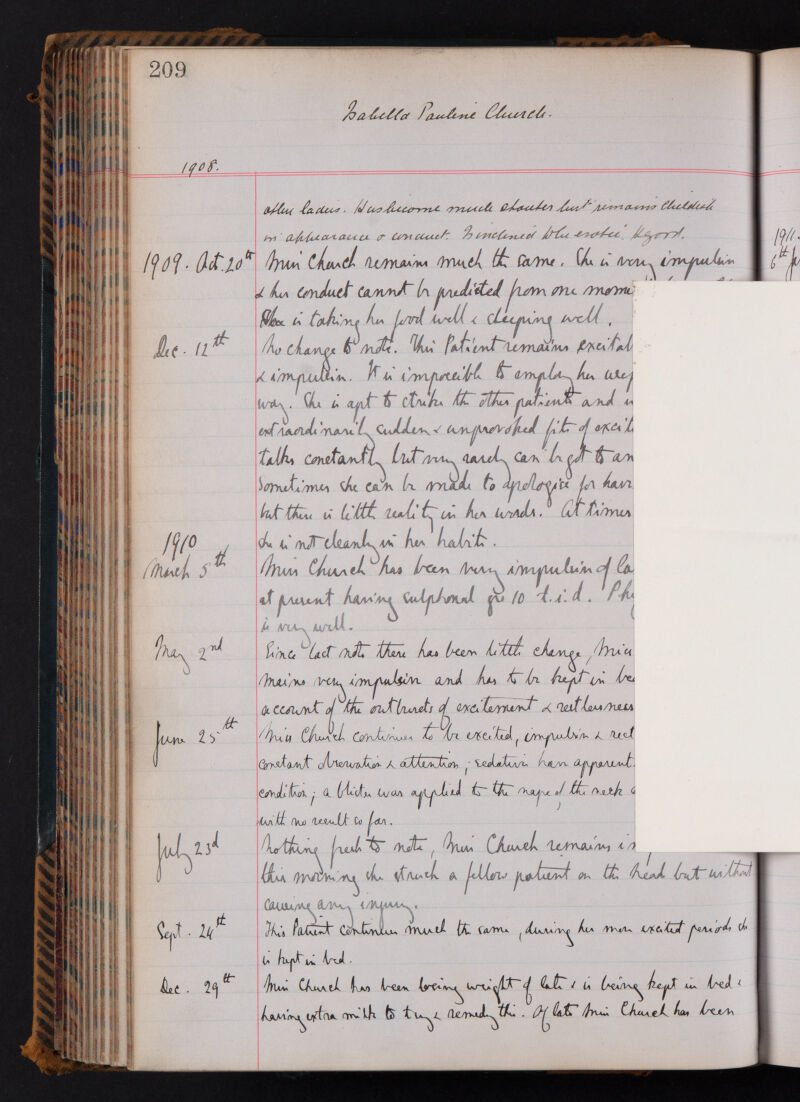 209
Isabella Pauline Church.
1908.
other ladies. Has become much stouter but remains childish
in appearance & conduct. Is inclined to be erotic.
1909. Oct. 20th Miss Church remains much the same. She is very impulsive
& her conduct cannot be predicted from one mome
She is taking her food well & sleeping well.
Dec. 12th No change to note. This Patient remains excitab
& impulsive. It is impossible to employ her
way. She is apt to strike the other patients and
extraordinarily sudden & unprovoked fits of excit
talks constantly but very rarely can be got to an
Sometimes she can be made to apologise for havi
but there is little reality in her words. At times
she is not cleanly in her habits.
1910
March 5th Miss Church has been very impulsive of la
at present having sulphonal grs 10 t.i.d. Phy
is very well.
May 2nd Since last note there has been little change, Miss
mains very impulsive and has to be kept in be
account of the outbursts of excitement & restlessness
June 25th Miss Church continues to be excited, impulsive & rest
constant observation & attention; sedatives have apparent
condition; a blister was applied to the nape of the neck
with no result so far.
July 23d Nothing fresh to note, Miss Church remains
this morning she struck a fellow patient on the head but without
causing any injury.
Sept. 24th This Patient continues much the same, during her more excited periods she
is kept in bed.
Dec. 29th Miss Church has been losing weight of late & is being kept in bed &
having extra milk to try & remedy this. Of late Miss Church has been
1911.
6th